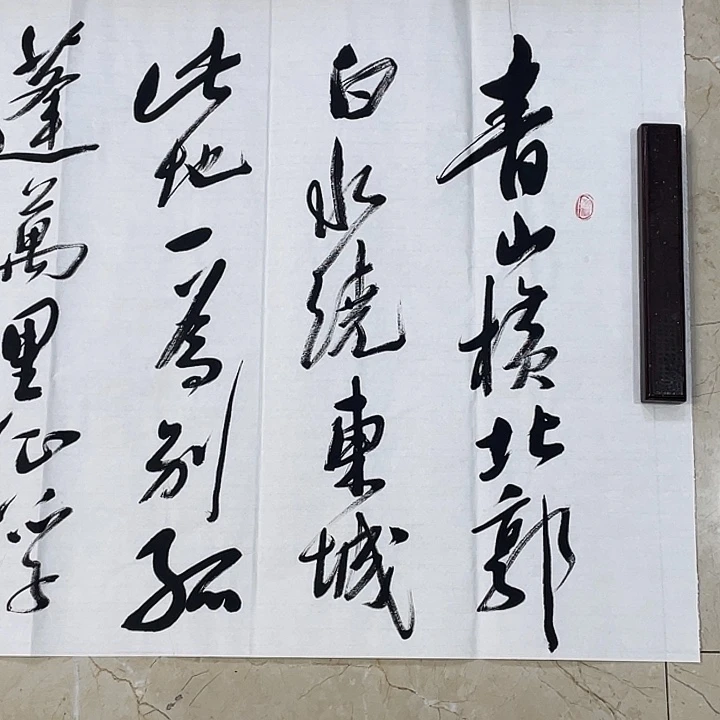 青山橫北郭
白水繞東城
此地一為別孤
蓬萬里征浮